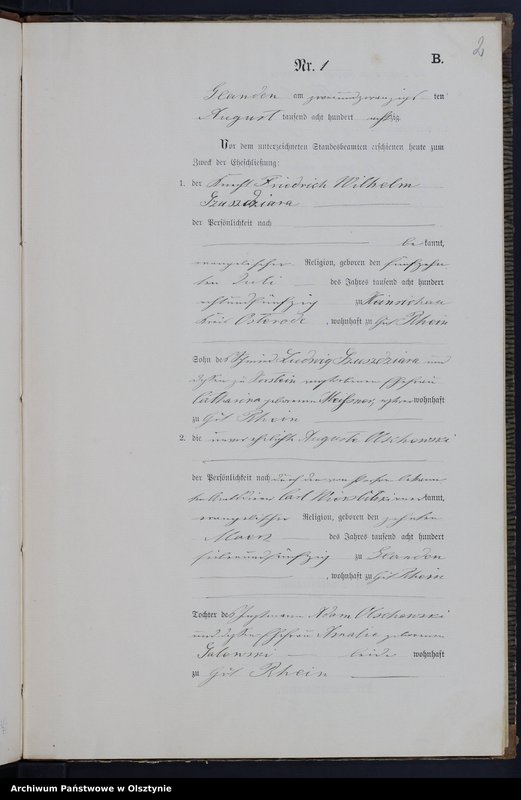 2
B.
Nr. 1
Glanden am zweiundzwanzigsten
August tausend acht hundert achtzig.
Vor dem unterzeichneten Standesbeamten erschienen heute zum
Zweck der Eheschließung:
1. der Knecht Friedrich Wilhelm
der Persönlichkeit nach
be kannt,
evangelischer Religion, geboren den fünfzehn
ten Juli des Jahres tausend acht hundert
achtundfünfzig zu
Kreis Osterode, wohnhaft zu Gut Rhein
Sohn des Schmied Ludwig und
dessen zu verstorbenen Ehefrau
Catharina geborenen Meißner, wohnhaft
zu Gut Rhein
2. die unverehelichte Auguste Olschewski
der Persönlichkeit nach durch den
Carl kannt,
evangelischer Religion, geboren den zehnten
Maerz des Jahres tausend acht hundert
siebenundfünfzig zu Glanden
, wohnhaft zu Gut Rhein
Tochter des Instmann Adam Olschewski
und dessen Ehefrau Amalie geborenen
beide wohnhaft
zu Gut Rhein
Archiwum Państwowe w Olsztynie